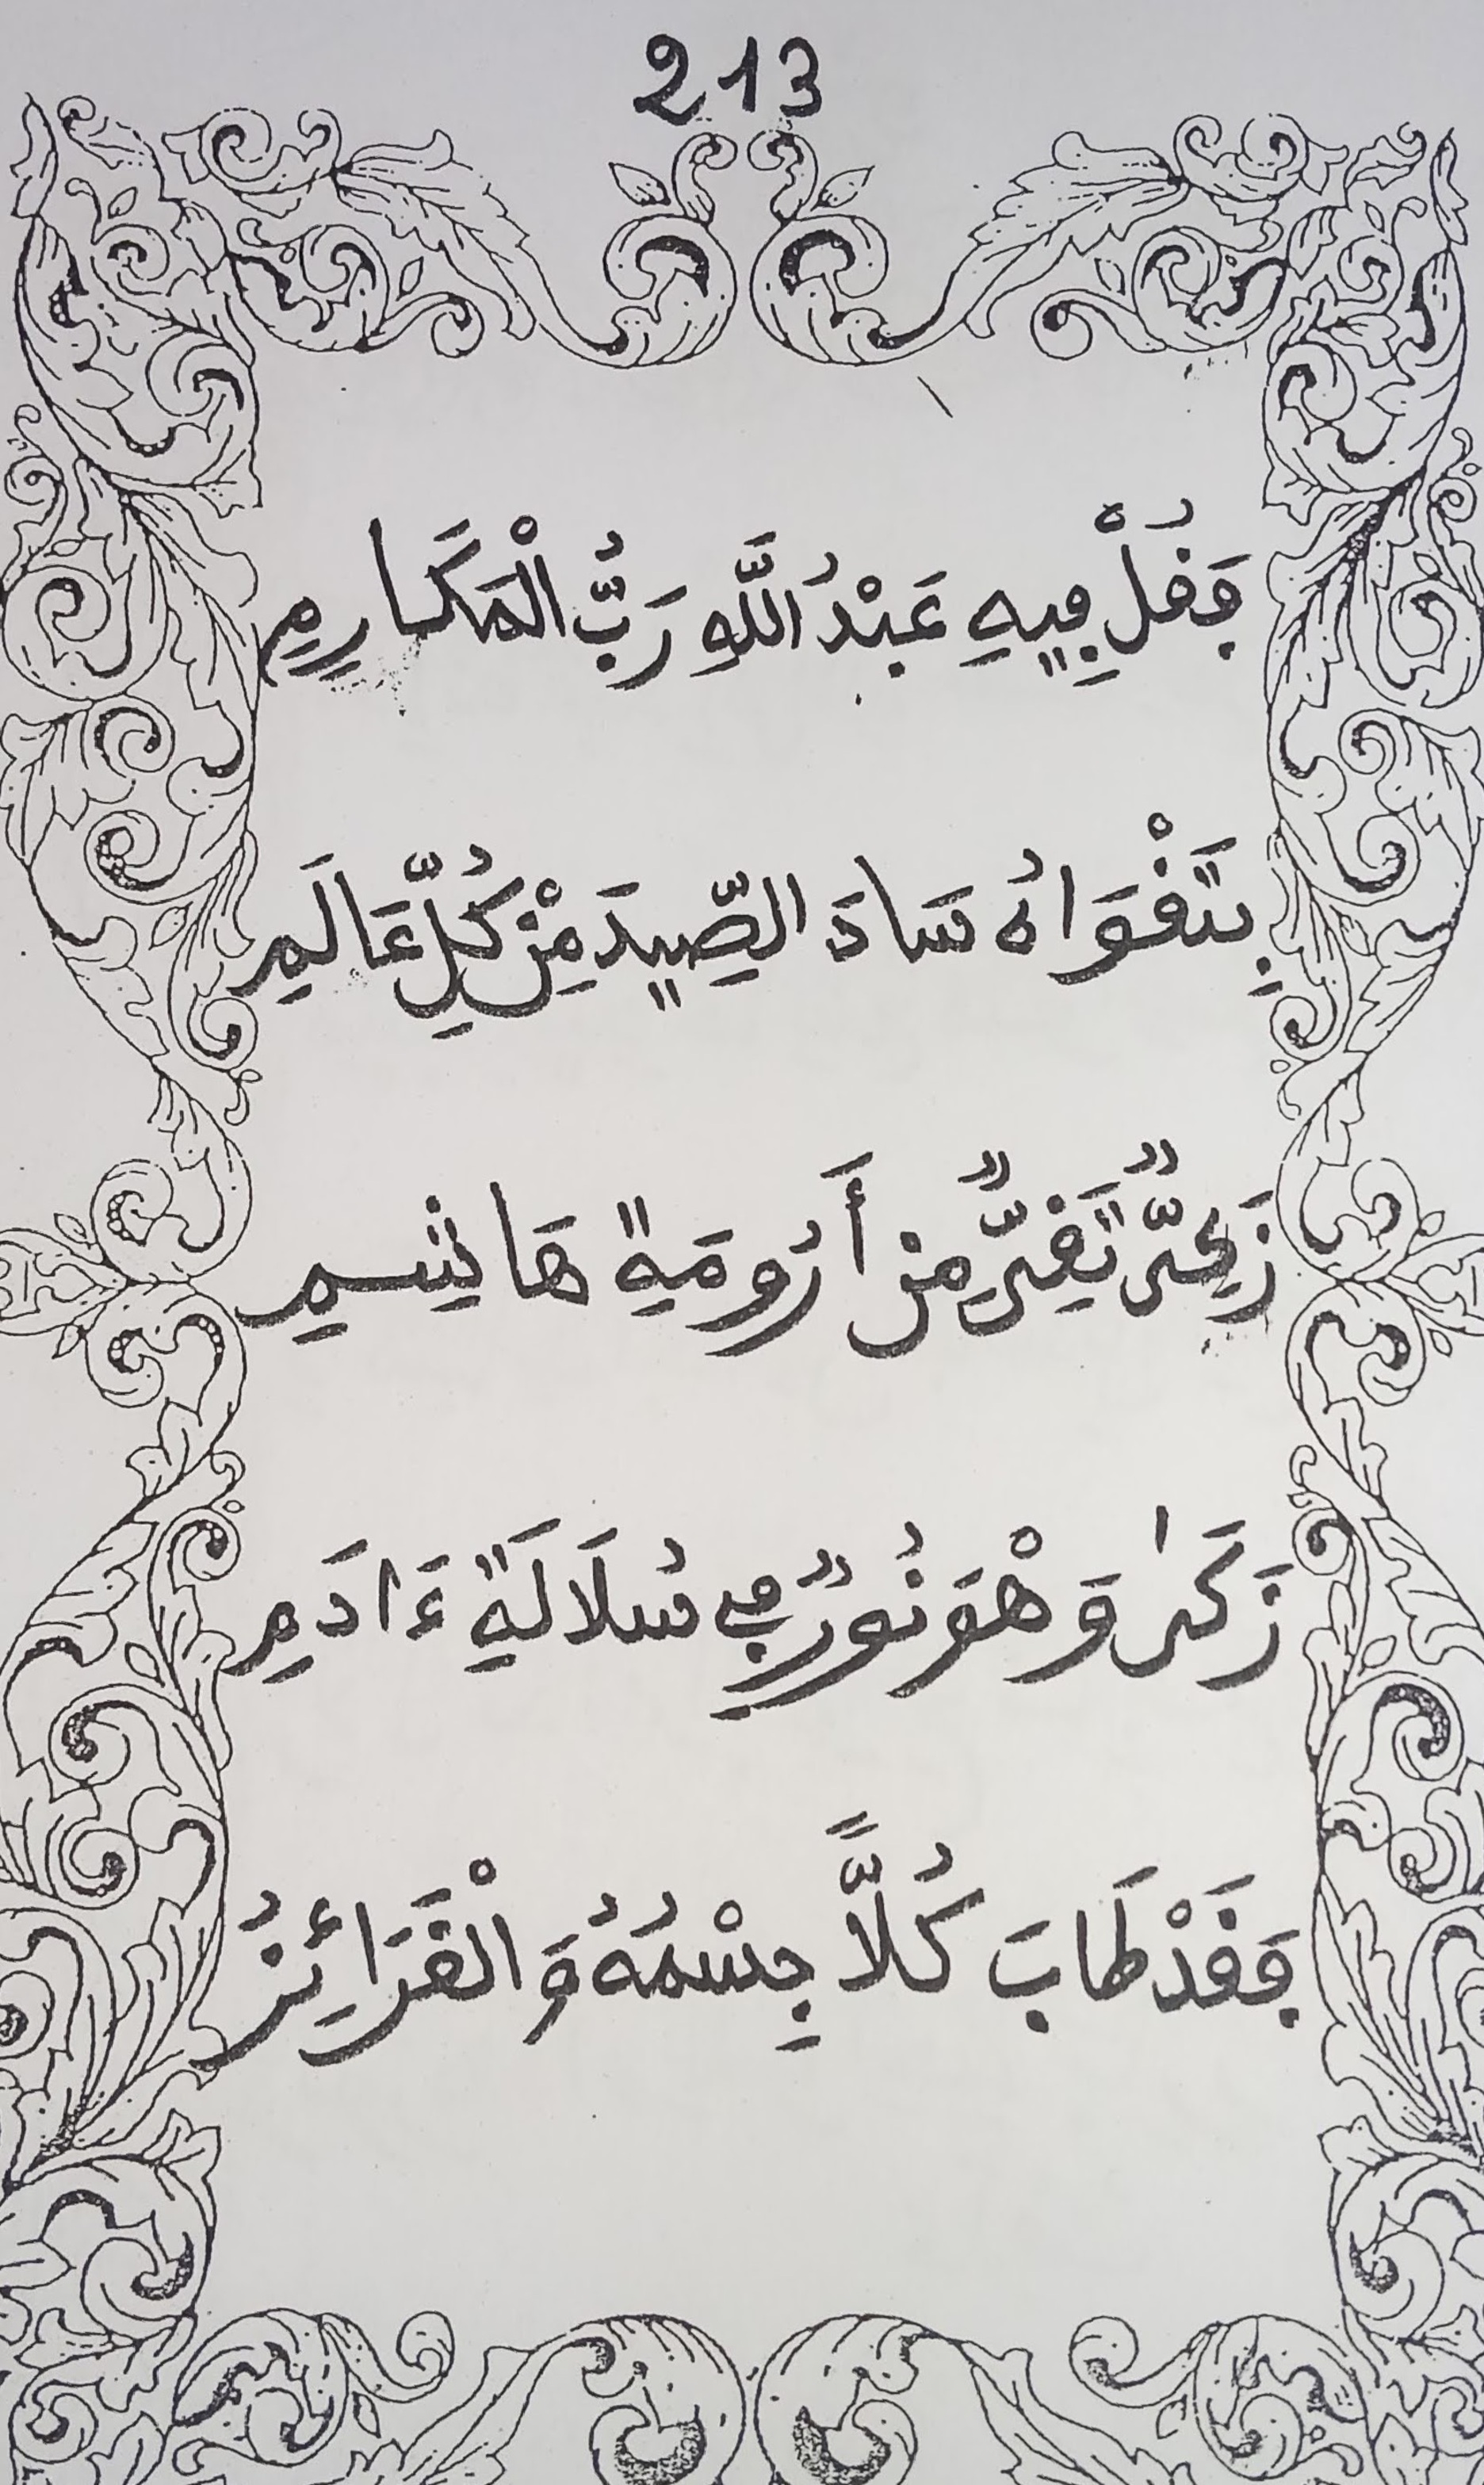 213
فَقُلْ فِيهِ عَبْدُ اللَّهِ رَبُّ الْمَكَارِمِ
بِتَقْوَاهُ سَادَ الصِّيدَ مِنْ كُلِّ عَالَمِ
زَكِيٌّ نَقِيٌّ مِن أَرُومَةِ هَاشِمِ
زَكَى وَهْوَ نُورٌ فِي سُلَالَةِ ءَادَمِ
فَقَدْ طَابَ كُلًّا جِسْمُهُ وَالْغَرَائِزُ